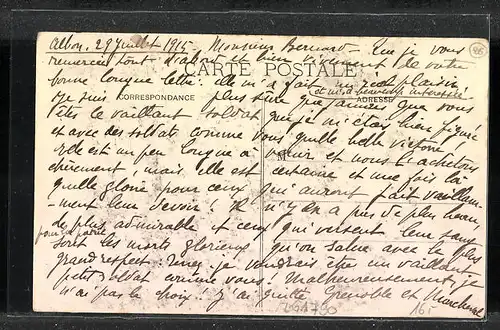 Albon, 29 Juillet 1915 - Monsieur Bernard - Que je vous
remercie tout d'abord et bien vivement de votre
CARTE POSTALE
bonne longue lettre! Elle m'a fait un réel plaisir!
et m'a beaucoup intéressée
CORRESPONDANCE
ADRESSE
Je suis plus sûre que jamais que vous
êtes le vaillant soldat que je m'étais bien figuré
et avec des soldats comme vous, quelle belle victoire!
Elle est un peu longue à venir et nous l'achetons
M
chèrement, mais elle est certaine et une fois là
quelle gloire pour ceux qui auront fait vaillam-
-ment leur devoir! Il n'y en a pas de plus beau,
de plus admirable et ceux qui versent leur sang
pour la patrie
sont les morts glorieux qu'on salue avec le plus
grand respect. je voudrais être un vaillant
petit soldat comme vous! Malheureusement, je
n'ai pas le choix! J'ai quitté Grenoble et